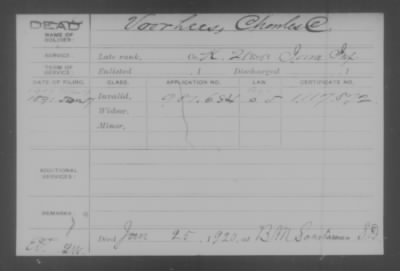 DEAD
NAME OF SOLDIER: Voorhees, Charles C.
SERVICE: Late rank, Co. K, 21 Reg't Iowa Inf
TERM OF SERVICE: Enlisted 1 Discharged 1
DATE OF FILING. CLASS. APPLICATION NO. LAW. CERTIFICATE NO.
Invalid, 981.684
Widow,
Minor,
ADDITIONAL SERVICES:
REMARKS:
Died Jan 25, 1920, at B.M. Sanitarium S.D.